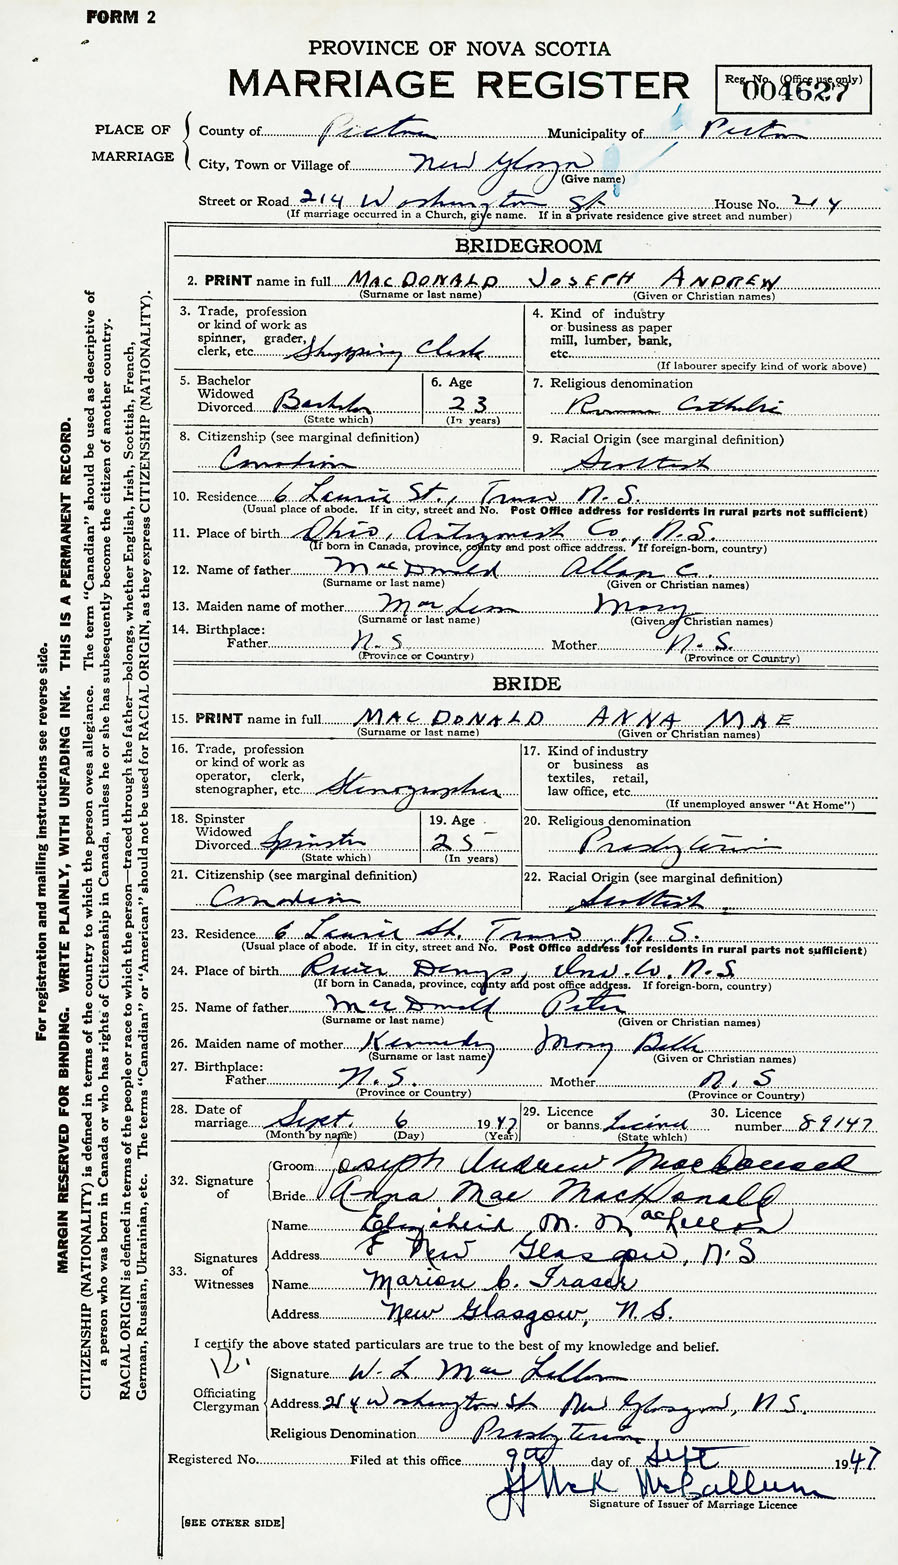 FORM 2
PROVINCE OF NOVA SCOTIA
MARRIAGE REGISTER
Reg. No. (Office use only)
004627
PLACE OF MARRIAGE
County of Pictou Municipality of Pictou
City, Town or Village of New Glasgow
(Give name)
Street or Road 214 Washington St. House No. 214
(If marriage occurred in a Church, give name. If in a private residence give street and number)
BRIDEGROOM
2. PRINT name in full MACDONALD JOSEPH ANDREW
(Surname or last name) (Given or Christian names)
3. Trade, profession or kind of work as spinner, grader, clerk, etc. Shipping Clerk
4. Kind of industry or business as paper mill, lumber, bank, etc.
(If labourer specify kind of work above)
5. Bachelor Widowed Divorced Bachelor
(State which)
6. Age 23
(In years)
7. Religious denomination
Roman Catholic
8. Citizenship (see marginal definition)
Canadian
9. Racial Origin (see marginal definition)
Scottish
10. Residence 6 Laurie St., Truro N.S.
(Usual place of abode. If in city, street and No. Post Office address for residents in rural parts not sufficient)
11. Place of birth Ohio, Antigonish Co., N.S.
(If born in Canada, province, county and post office address. If foreign-born, country)
12. Name of father MacDonald Allan C.
(Surname or last name) (Given or Christian names)
13. Maiden name of mother Mary
(Surname or last name) (Given or Christian names)
14. Birthplace:
Father N.S Mother N.S.
(Province or Country) (Province or Country)
BRIDE
15. PRINT name in full MACDONALD ANNA MAE
(Surname or last name) (Given or Christian names)
16. Trade, profession or kind of work as operator, clerk, stenographer, etc. Stenographer
17. Kind of industry or business as textiles, retail, law office, etc.
(If unemployed answer "At Home")
18. Spinster Widowed Divorced Spinster
(State which)
19. Age 25
(In years)
20. Religious denomination
Presbyterian
21. Citizenship (see marginal definition)
Canadian
22. Racial Origin (see marginal definition)
Scottish
23. Residence 6 Laurie St. Truro, N.S.
(Usual place of abode. If in city, street and No. Post Office address for residents in rural parts not sufficient)
24. Place of birth River Denys, Inv. Co. N.S
(If born in Canada, province, county and post office address. If foreign-born, country)
25. Name of father MacDonald Peter
(Surname or last name) (Given or Christian names)
26. Maiden name of mother Kennedy Mary Belle
(Surname or last name) (Given or Christian names)
27. Birthplace:
Father N.S. Mother N.S
(Province or Country) (Province or Country)
28. Date of marriage Sept. 6 1947
(Month by name) (Day) (Year)
29. Licence or banns License
(State which)
30. Licence number 89147
32. Signature of
Groom Joseph Andrew MacDonald
Bride Anna Mae MacDonald
33. Signatures of Witnesses
Name M. MacLellan
Address New Glasgow, N.S
Name Marion C. Fraser
Address New Glasgow, N.S.
I certify the above stated particulars are true to the best of my knowledge and belief.
Officiating Clergyman
Signature W. L. MacLellan
Address 214 Washington St. New Glasgow, N.S.
Religious Denomination Presbyterian
Registered No. Filed at this office 9th day of Sept 1947
McK McCallum
Signature of Issuer of Marriage Licence
[SEE OTHER SIDE]
For registration and mailing instructions see reverse side.
MARGIN RESERVED FOR BINDING. WRITE PLAINLY, WITH UNFADING INK. THIS IS A PERMANENT RECORD.
CITIZENSHIP (NATIONALITY) is defined in terms of the country to which the person owes allegiance. The term "Canadian" should be used as descriptive of
a person who was born in Canada or who has rights of Citizenship in Canada, unless he or she has subsequently become the citizen of another country.
RACIAL ORIGIN is defined in terms of the people or race to which the person—traced through the father—belongs, whether English, Irish, Scottish, French,
German, Russian, Ukrainian, etc. The terms "Canadian" or "American" should not be used for RACIAL ORIGIN, as they express CITIZENSHIP (NATIONALITY).